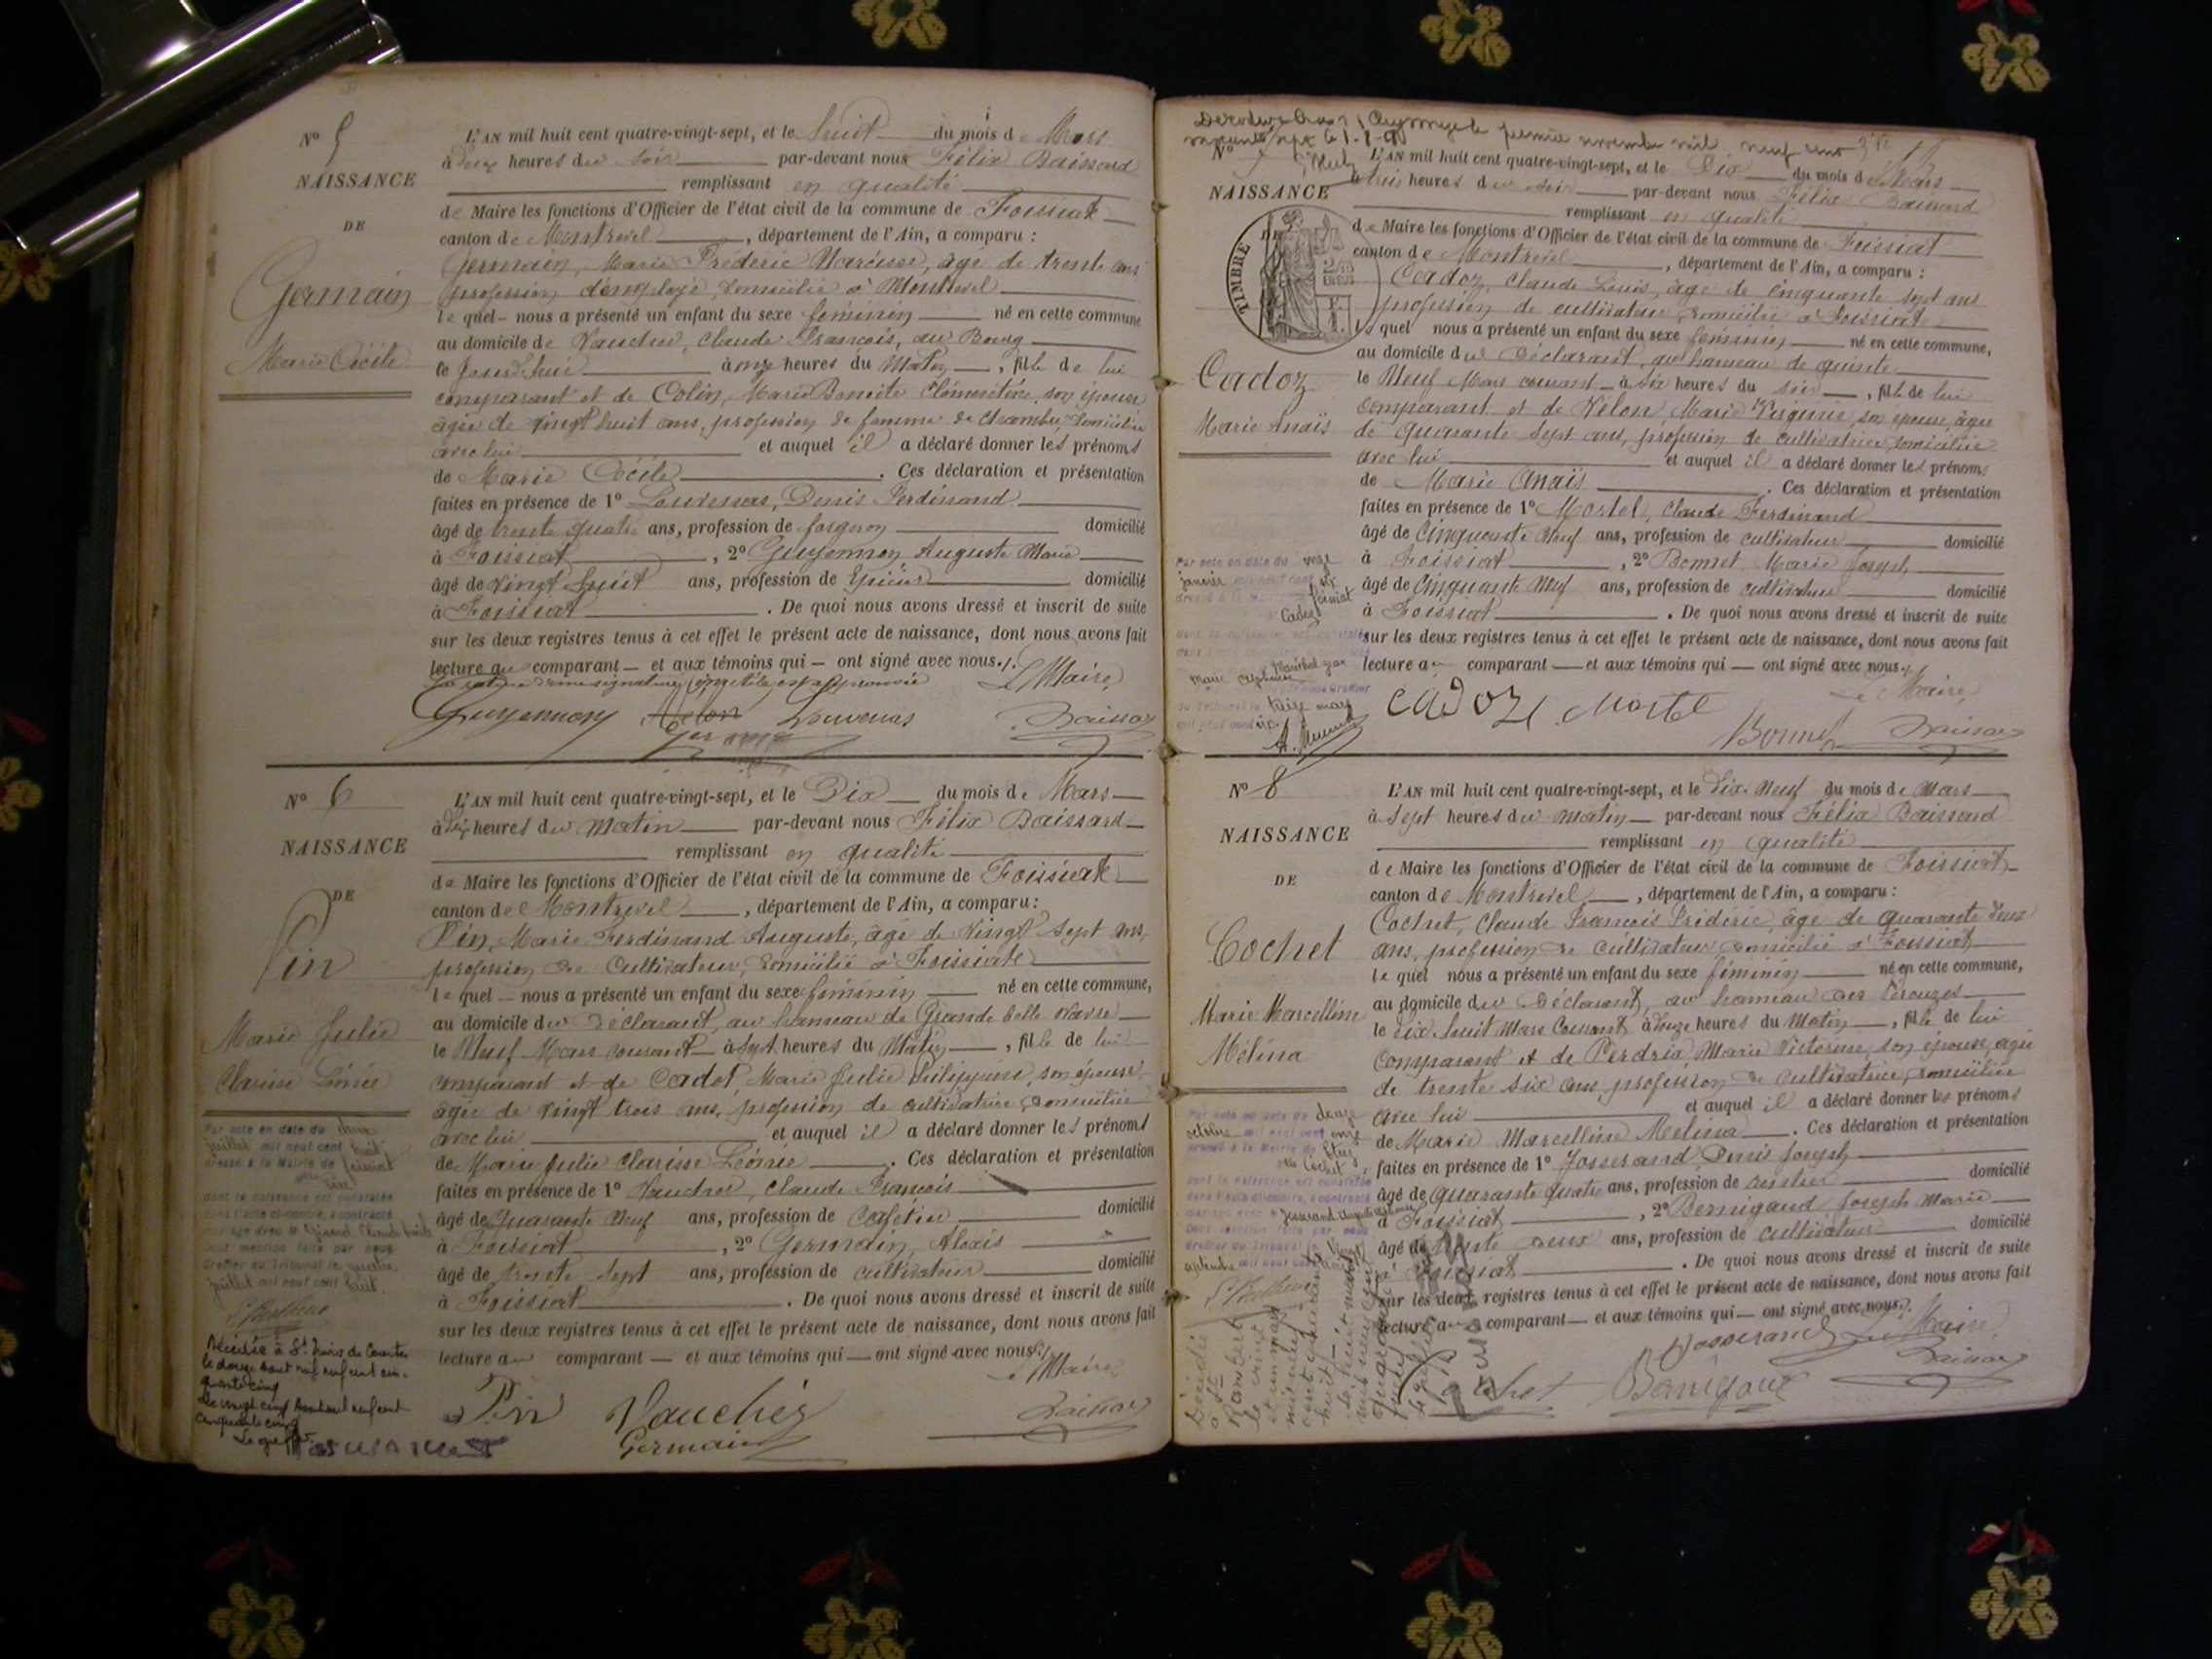 N° 5
NAISSANCE
DE
Germain
Marie Cécile
L'AN mil huit cent quatre-vingt-sept, et le huit du mois de Mars
à deux heures du soir par-devant nous Félix Baissard
remplissant en qualité
de Maire les fonctions d'Officier de l'état civil de la commune de Foissiat
canton de Montrevel, département de l'Ain, a comparu :
Germain, Marie Frédéric Narcisse, âgé de trente ans
profession d'employé, domicilié à Montrevel
lequel nous a présenté un enfant du sexe féminin né en cette commune
au domicile de Vaucher, Claude François, au Bourg
le jourd'hui à onze heures du Matin, fille de lui
comparant et de Colin, Marie Benoite Clémentine, son épouse
âgée de vingt huit ans, profession de femme de chambre, domiciliée
avec lui et auquel il a déclaré donner les prénoms
de Marie Cécile. Ces déclaration et présentation
faites en présence de 1° Louvenas, Denis Ferdinand
âgé de trente quatre ans, profession de forgeron domicilié
à Foissiat, 2° Guyennon Auguste Marie
âgé de vingt huit ans, profession de Epicier domicilié
à Foissiat. De quoi nous avons dressé et inscrit de suite
sur les deux registres tenus à cet effet le présent acte de naissance, dont nous avons fait
lecture au comparant et aux témoins qui ont signé avec nous.
Le Maire,
Guyennon Louvenas Baissard
Germain
N° 6
NAISSANCE
DE
Pin
Marie Julie
Clarisse Léonie
L'AN mil huit cent quatre-vingt-sept, et le Dix du mois de Mars
à dix heures du Matin par-devant nous Félix Baissard
remplissant en qualité
de Maire les fonctions d'Officier de l'état civil de la commune de Foissiat
canton de Montrevel, département de l'Ain, a comparu :
Pin, Marie Ferdinand Auguste, âgé de Vingt Sept ans,
profession de Cultivateur, domicilié à Foissiat
lequel nous a présenté un enfant du sexe féminin né en cette commune,
au domicile du Déclarant, au hameau de Grande
le Neuf Mars courant à Sept heures du Matin, fille de lui
comparant et de Cadet, Marie Julie Philippine, son épouse
âgée de vingt trois ans, profession de cultivatrice domiciliée
avec lui et auquel il a déclaré donner les prénoms
de Marie Julie Clarisse Léonie. Ces déclaration et présentation
faites en présence de 1° Vaucher, Claude François
âgé de Quarante Neuf ans, profession de Cafetier domicilié
à Foissiat, 2° Germain, Alexis
âgé de trente Sept ans, profession de cultivateur domicilié
à Foissiat. De quoi nous avons dressé et inscrit de suite
sur les deux registres tenus à cet effet le présent acte de naissance, dont nous avons fait
lecture au comparant et aux témoins qui ont signé avec nous.
Le Maire,
Pin Vaucher Baissard
Germain
Par acte en date du
juillet mil neuf cent huit
dressé à la Mairie de foissiat
dont la naissance est constatée
dans l'acte ci-contre, a contracté
mariage avec
Dont mention faite par nous
Greffier du Tribunal le quatre
juillet mil neuf cent huit.
Décédée à St
le douze août mil neuf cent cin-
quante cinq
Le vingt cinq août mil neuf cent
cinquante cinq
Le greffier
premier novembre mil neuf cent
N° 7
NAISSANCE
DE
TIMBRE
Cadoz
Marie Anaïs
L'AN mil huit cent quatre-vingt-sept, et le Dix du mois de Mars
à trois heures du soir par-devant nous Félix Baissard
remplissant en qualité
de Maire les fonctions d'Officier de l'état civil de la commune de Foissiat
canton de Montrevel, département de l'Ain, a comparu :
Cadoz, Claude Louis, âgé de cinquante sept ans
profession de cultivateur domicilié à Foissiat
lequel nous a présenté un enfant du sexe féminin né en cette commune,
au domicile du Déclarant, au hameau de
le Neuf Mars courant à six heures du soir, fille de lui
comparant et de Vélon Marie Virginie, son épouse, âgée
de quarante sept ans, profession de cultivatrice, domiciliée
avec lui et auquel il a déclaré donner les prénoms
de Marie Anaïs. Ces déclaration et présentation
faites en présence de 1° Mortel, Claude Ferdinand
âgé de Cinquante Neuf ans, profession de cultivateur domicilié
à Foissiat, 2° Bonnet, Marie Joseph
âgé de Cinquante Neuf ans, profession de cultivateur domicilié
à Foissiat. De quoi nous avons dressé et inscrit de suite
sur les deux registres tenus à cet effet le présent acte de naissance, dont nous avons fait
lecture au comparant et aux témoins qui ont signé avec nous.
Le Maire,
CADOZ Mortel
Bonnet Baissard
Par acte en date du onze
janvier
N° 8
NAISSANCE
DE
Cochet
Marie Marcelline
Mélina
L'AN mil huit cent quatre-vingt-sept, et le Dix Neuf du mois de Mars
à sept heures du Matin par-devant nous Félix Baissard
remplissant en qualité
de Maire les fonctions d'Officier de l'état civil de la commune de Foissiat
canton de Montrevel, département de l'Ain, a comparu :
Cochet, Claude François Frédéric, âgé de quarante deux
ans, profession de Cultivateur domicilié à Foissiat
lequel nous a présenté un enfant du sexe féminin né en cette commune,
au domicile du Déclarant, au hameau des
le Dix huit Mars Courant à onze heures du Matin, fille de lui
comparant et de Perdrix Marie Victorine, son épouse, âgée
de trente six ans, profession de cultivatrice, domiciliée
avec lui et auquel il a déclaré donner les prénoms
de Marie Marcelline Mélina. Ces déclaration et présentation
faites en présence de 1° Josserand Denis Joseph
âgé de quarante quatre ans, profession de domicilié
à Foissiat, 2° Bernigaud Joseph Marie
âgé de trente deux ans, profession de cultivateur domicilié
à Foissiat. De quoi nous avons dressé et inscrit de suite
sur les deux registres tenus à cet effet le présent acte de naissance, dont nous avons fait
lecture au comparant et aux témoins qui ont signé avec nous.
Josserand Le Maire,
Cochet Bernigaud Baissard